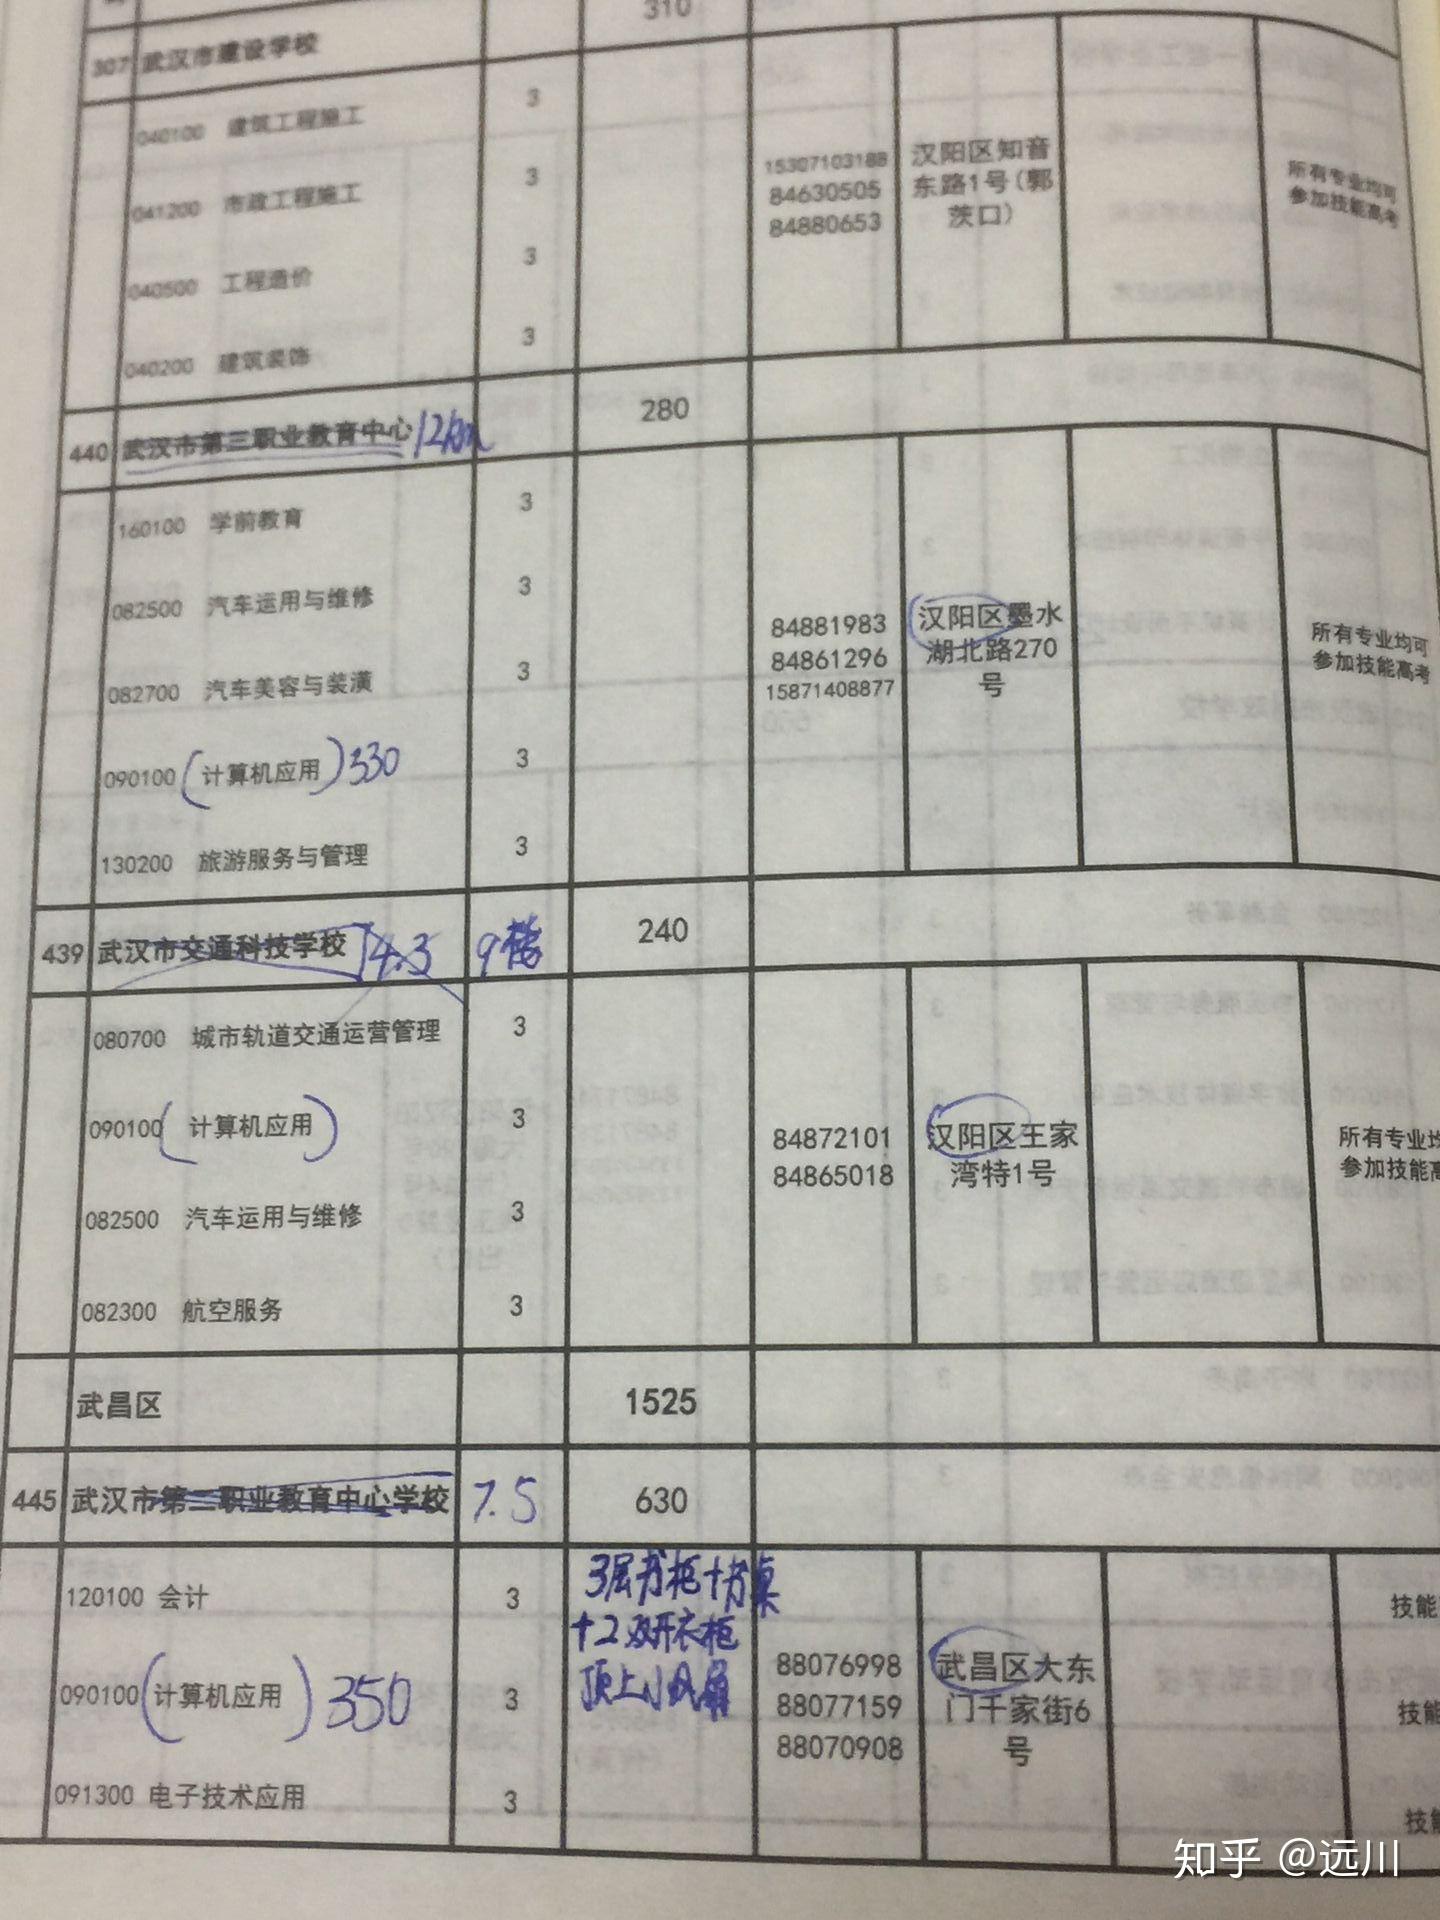 310
307 武汉市建设学校
040100 建筑工程施工 3
041200 市政工程施工 3
040500 工程造价 3
040200 建筑装饰 3
15307103188
84630505
84880653
汉阳区知音
东路1号(郭
茨口)
所有专业均可
参加技能高考
440 武汉市第三职业教育中心 12km 280
160100 学前教育 3
082500 汽车运用与维修 3
082700 汽车美容与装潢 3
090100 (计算机应用) 330 3
130200 旅游服务与管理 3
84881983
84861296
15871408877
汉阳区墨水
湖北路270
号
所有专业均可
参加技能高考
439 武汉市交通科技学校 14.3 9楼 240
080700 城市轨道交通运营管理 3
090100 (计算机应用) 3
082500 汽车运用与维修 3
082300 航空服务 3
84872101
84865018
汉阳区王家
湾特1号
所有专业均
参加技能高
武昌区 1525
445 武汉市第二职业教育中心学校 7.5 630
120100 会计 3
090100 (计算机应用) 350 3
091300 电子技术应用 3
3层书柜+书桌
+2双开衣柜
顶上小风扇
88076998
88077159
88070908
武昌区大东
门千家街6
号
技能
技能
技能
知乎 @远川